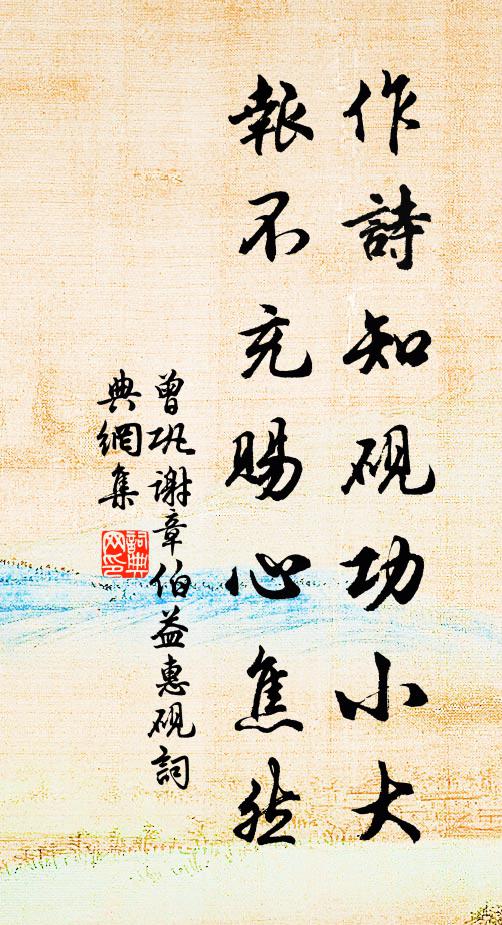 作詩知硯功小大
報不充賜心焦然
曾巩谢章伯益惠硯詞
典網集
詞典网印